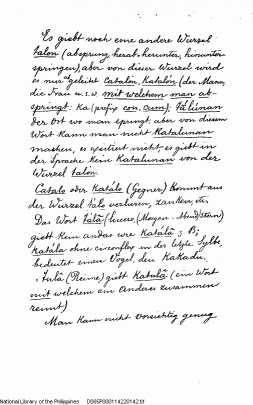 Es giebt noch eine andere Wurzel
talón (absprung, herab, herunter, hinunter
springen), aber von dieser Wurzel wird
es nur geleitet Catalón, Katalón (der Mann,
die Frau u.s.w. mit welchem man ab-
springt. Ka (prefix con, cum); Talúnan
der Ort wo man springt. aber von diesem
Wort kann man nicht Katalunan
machen, es existiert nicht; es giebt in
der Sprache kein Katalunan von der
Wurzel talon.
Catalo oder Katálo (Gegner) kommt aus
der Wurzel talo verlieren, zanken, etc
Das Wort tálà (lucero, (Morgen - Abendstern)
giebt kein andas wie Katálà;
katála ohne circonflex in der letzte Sylbe,
bedeutet einen Vogel, den Kakadu.
Tulà (Reime) giebt Katulà (ein Wort
mit welchem ein Anderes zusammen
reimt)
Man kann nicht vorsichtig genug
National Library of the Philippines D065F00011422014Z.tif